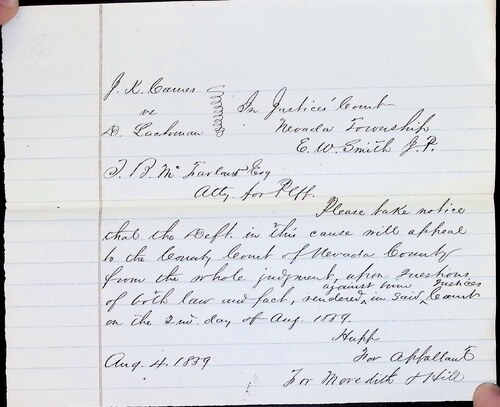 J. K. Carnes
vs
D. Lachman
In Justices' Court
Nevada Township
E. W. Smith J. P.
T. B. McFarland Esq
Atty for Plff.
Please take notice
that the Deft. in this cause will appeal
to the County Court of Nevada County
from the whole judgment, upon questions
of both law and fact, rendered, against him in said Justices Court
on the 2nd day of Aug. 1859.
Hupp
For Appellant
Aug. 4. 1859
For Meredith & Hill